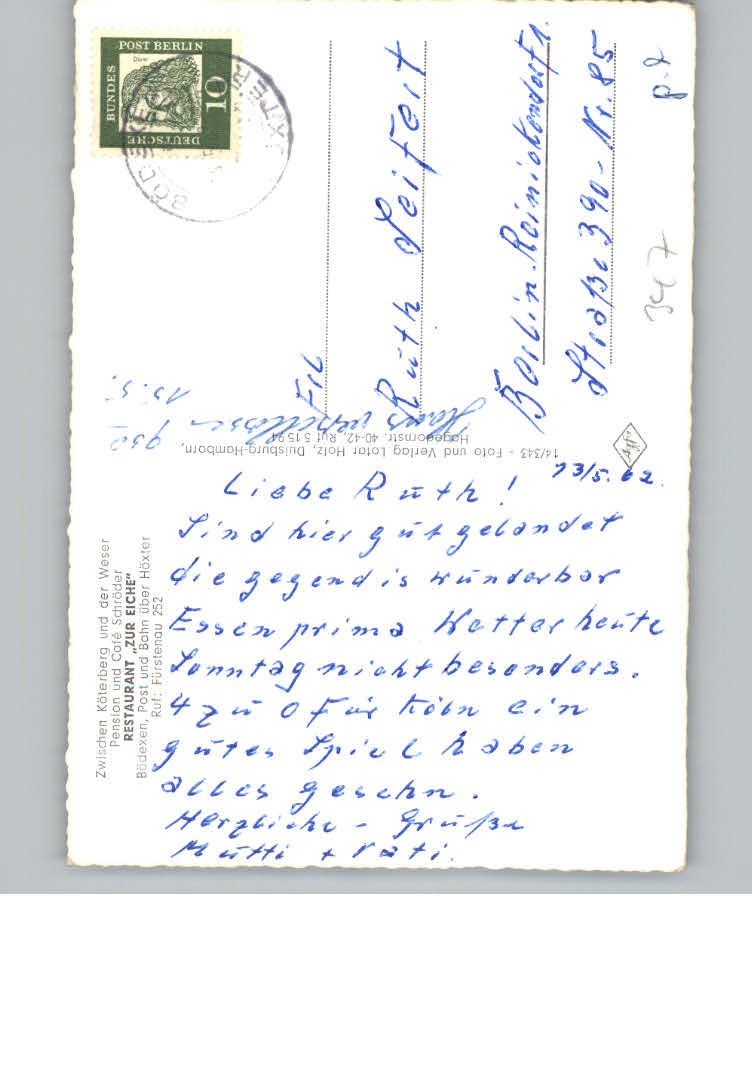 Zwischen Köterberg und der Weser
Pension und Café Schröder
RESTAURANT „ZUR EICHE“
Bödexen, Post und Bahn über Höxter
Ruf: Fürstenau 252
13/5.62.
Liebe Ruth!
Sind hier gut gelandet
die gegend is wunderbar
Essen prima Wetter heute
Sonntag nicht besonders.
4 zu 0 für Köln ein
gutes Spiel haben
alles gesehn.
Herzliche - Grüße
Mutti + Vati.
14/343 - Foto und Verlag Lotar Holz, Duisburg-Hamborn,
Hagedornstr. 40-42, Ruf 5 15 94
Haus verschlossen 930
15.5.
DEUTSCHE BUNDESPOST BERLIN
10
Frl
Ruth Seifert
Berlin-Reinickendorf 1.
Straße 390 - Nr. 85
347